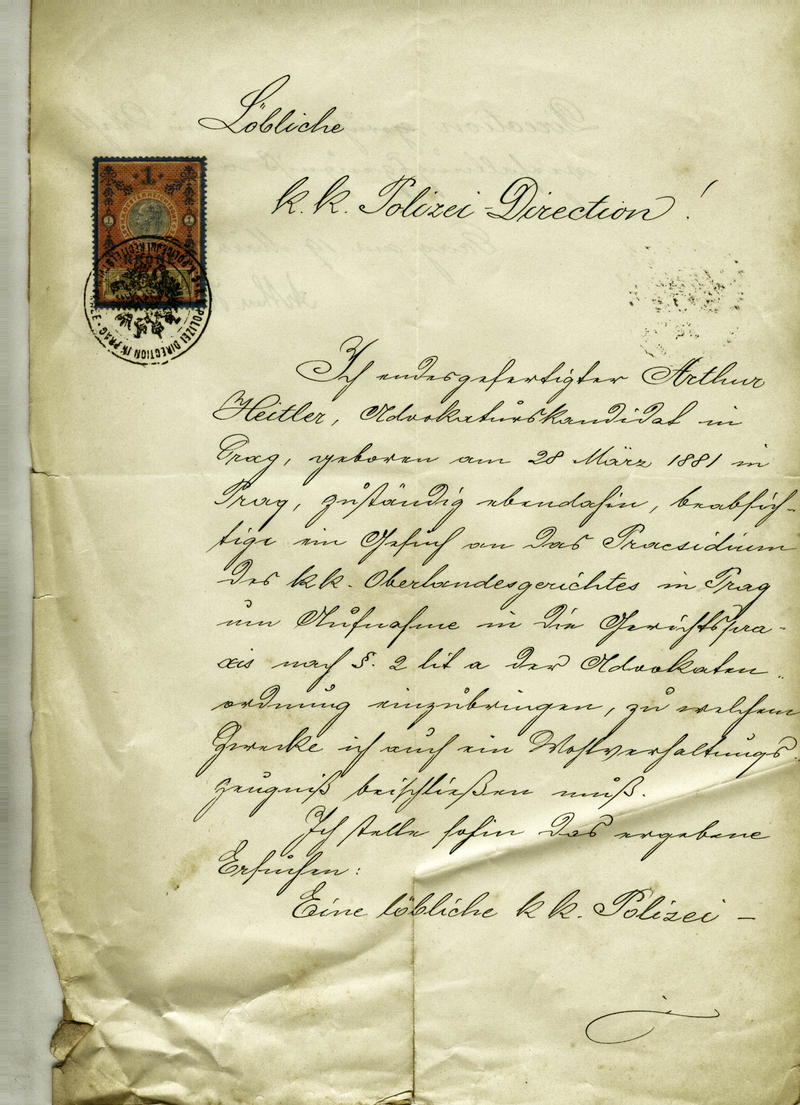 Löbliche
k. k. Polizei-Direction!
1
K.K. POLIZEI DIRECTION IN PRAG
Ich endesgefertigter Arthur
Heitler, Advokaturskandidat in
Prag, geboren am 28 März 1881 in
Prag, zuständig ebendahin, beabsich-
tige ein Gesuch an das Praesidium
des k.k. Oberlandesgerichtes in Prag
um Aufnahme in die Gerichtspra-
xis nach §. 2 lit a der Advokaten-
ordnung einzubringen, zu welchem
Zwecke ich auch ein Wohlverhaltungs-
zeugniß beischließen muß.
Ich stelle sohin das ergebene
Ersuchen:
Eine löbliche k k. Polizei -